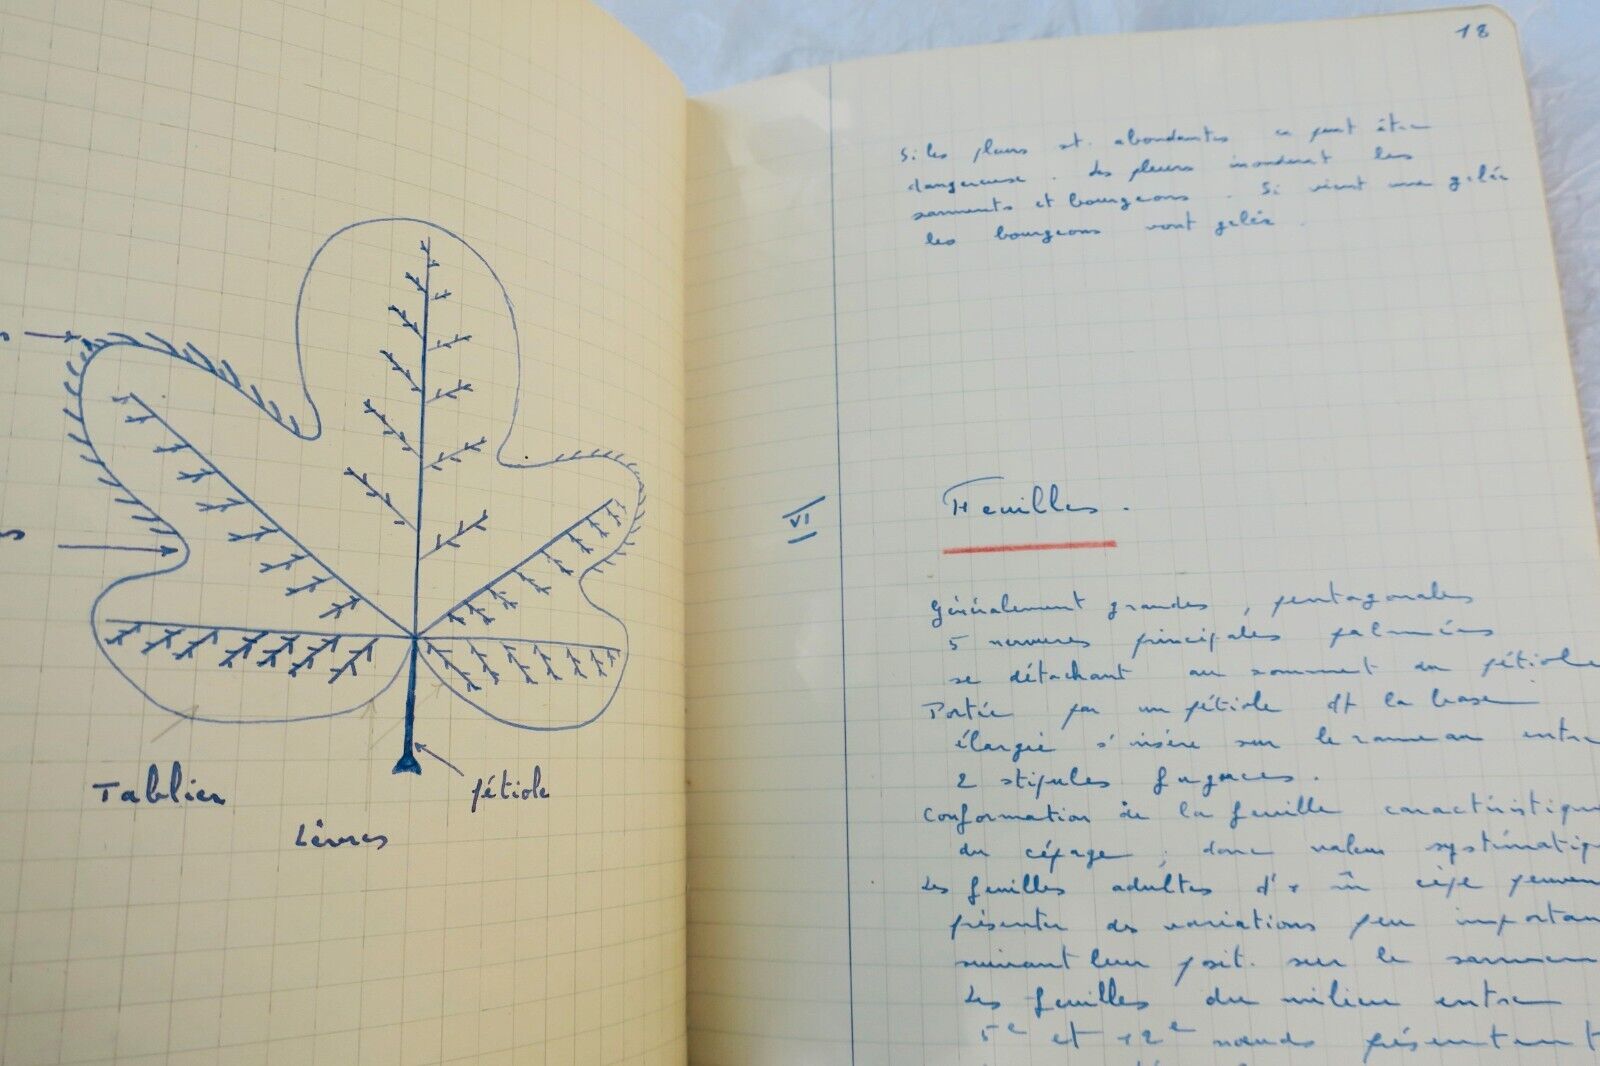 s
s
Tablier
Lèvres
pétiole
18
Si les pleurs st. abondantes ça peut être
dangereuse. Les pleurs inondent les
sarments et bourgeons. Si vient une gelée
les bourgeons vont geler.
VI
Feuilles.
Généralement grandes, pentagonales
5 nervures principales palmées
se détachant au sommet du pétiole
Portée par un pétiole dt la base
élargie s'insère sur le rameau entre
2 stipules fugaces.
Conformation de la feuille caractéristique
du cépage, donc valeur systématiq
Les feuilles adultes d'1 m̂ cépe peuven
présenter des variations peu importan
suivant leur posit. sur le sarmen
Les feuilles du milieu entre
5e et 12e nœuds présentent